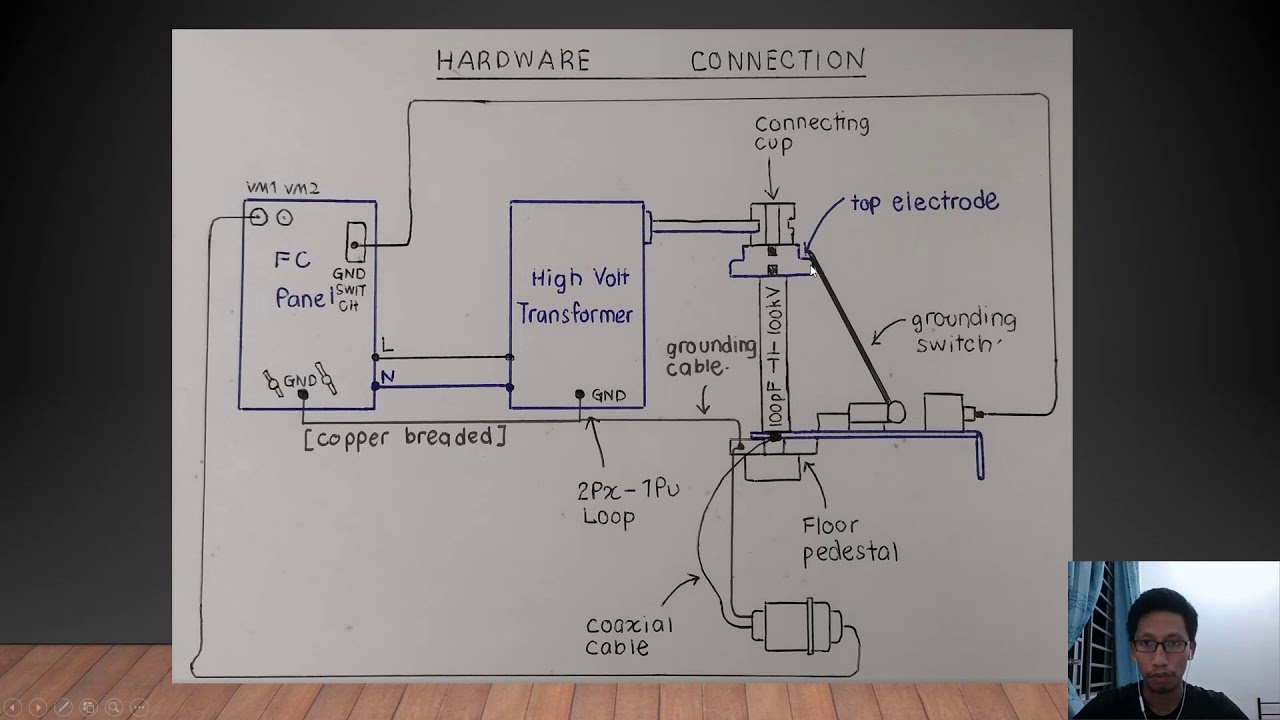 HARDWARE CONNECTION
connecting
cup
VM1 VM2
top electrode
FC
Panel
GND
SWIT
CH
High Volt
Transformer
100pF ⊣⊢ 100kV
grounding
switch
grounding
cable.
L
N
GND
GND
[copper breaded]
2Px-1Pu
Loop
Floor
pedestal
coaxial
cable